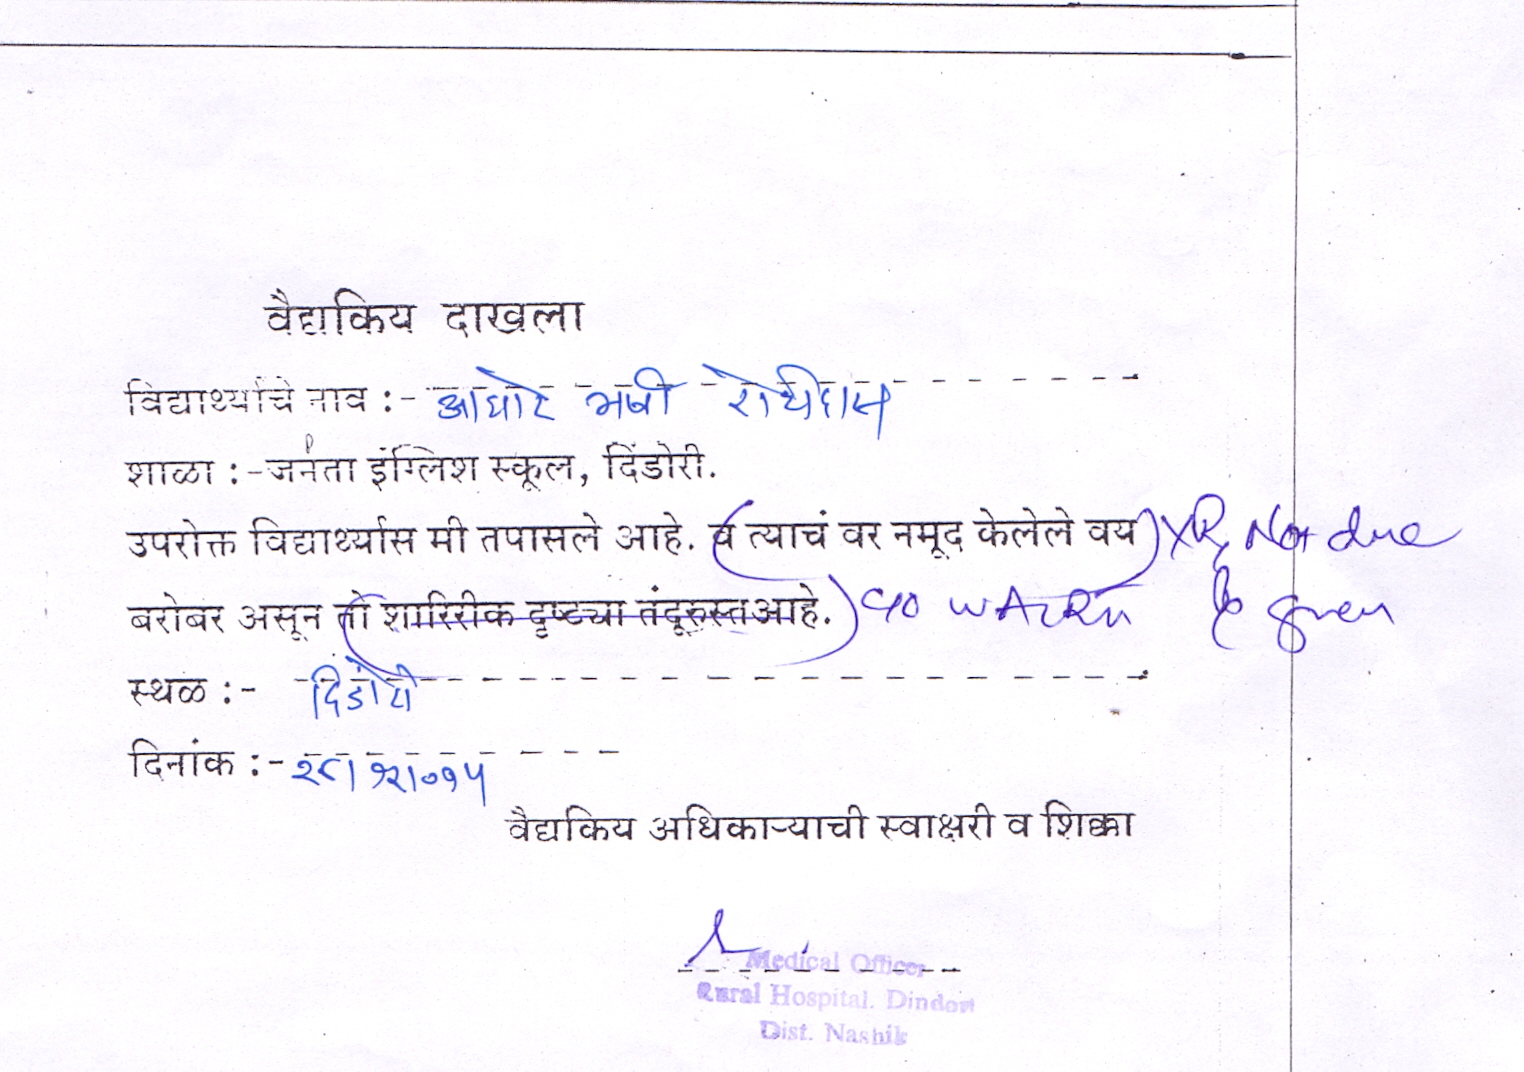 वैद्यकिय दाखला
विद्यार्थ्याचे नाव :-
शाळा :- जनता इंग्लिश स्कूल, दिंडोरी.
उपरोक्त विद्यार्थ्यास मी तपासले आहे. व त्याचं वर नमूद केलेले वय Not due
बरोबर असून तो शारिरीक दृष्टच्या तंदूरुस्त आहे. given
स्थळ :- दिंडोरी
दिनांक :- २८।१२।०१५
वैद्यकिय अधिकाऱ्याची स्वाक्षरी व शिक्का
Medical Officer
Rural Hospital. Dindori
Dist. Nashik